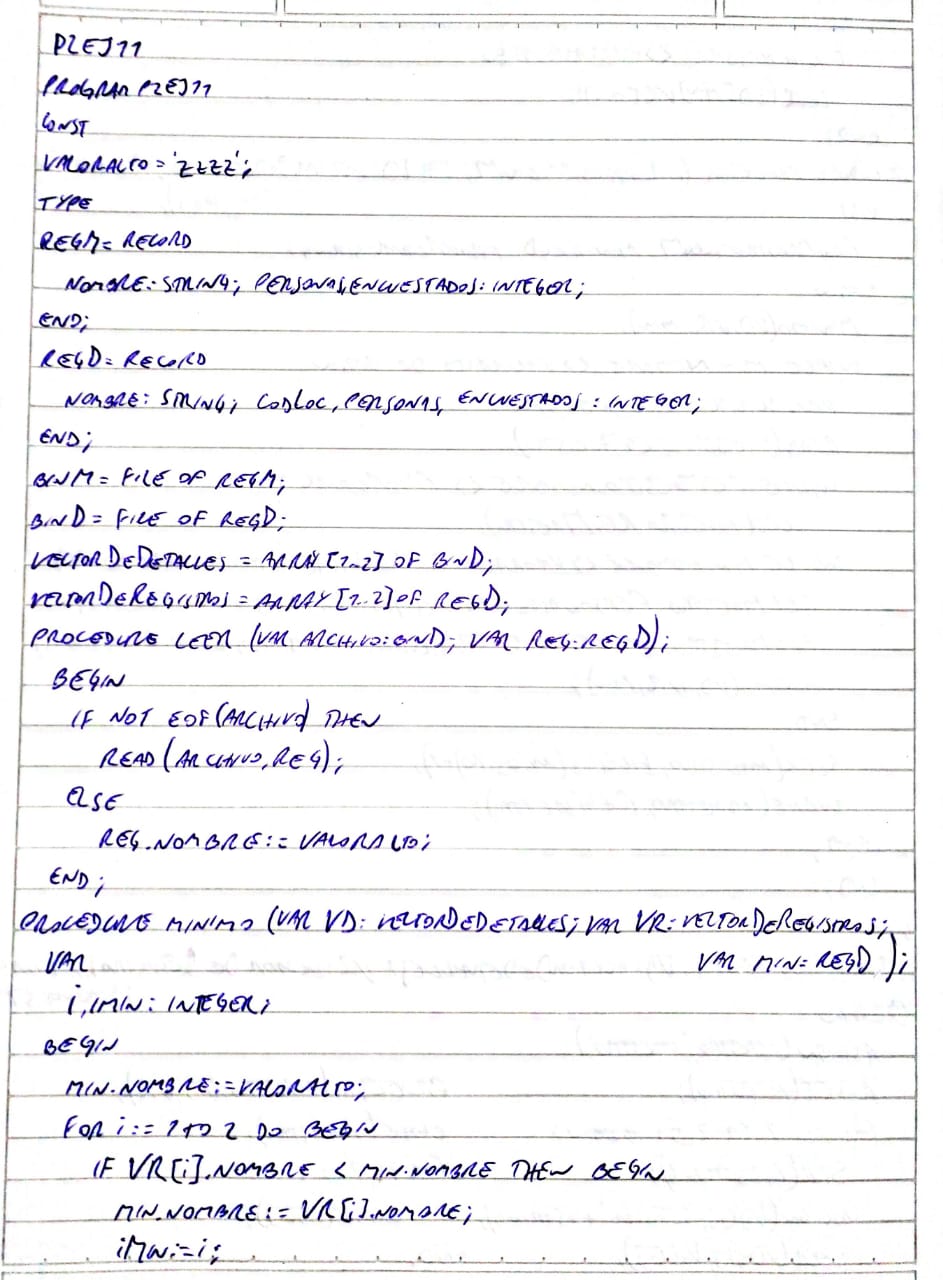 P2EJ11
PROGRAM P2EJ11
CONST
VALORALTO = 'ZZZZ';
TYPE
REGM = RECORD
NOMBRE: STRING; PERSONAS, ENCUESTADOS: INTEGER;
END;
REGD = RECORD
NOMBRE: STRING; CODLOC, PERSONAS, ENCUESTADOS : INTEGER;
END;
BINM = FILE OF REGM;
BIND = FILE OF REGD;
VECTORDEDETALLES = ARRAY [1..2] OF BIND;
VECTORDEREGISTROS = ARRAY [1..2] OF REGD;
PROCEDURE LEER (VAR ARCHIVO: BIND; VAR REG: REGD);
BEGIN
IF NOT EOF(ARCHIVO) THEN
READ (ARCHIVO, REG);
ELSE
REG.NOMBRE := VALORALTO;
END;
PROCEDURE MINIMO (VAR VD: VECTORDEDETALLES; VAR VR: VECTORDEREGISTROS;
VAR MIN: REGD );
VAR
i, iMIN: INTEGER;
BEGIN
MIN.NOMBRE := VALORALTO;
FOR i := 1 TO 2 DO BEGIN
IF VR[i].NOMBRE < MIN.NOMBRE THEN BEGIN
MIN.NOMBRE := VR[i].NOMBRE;
iMIN := i;